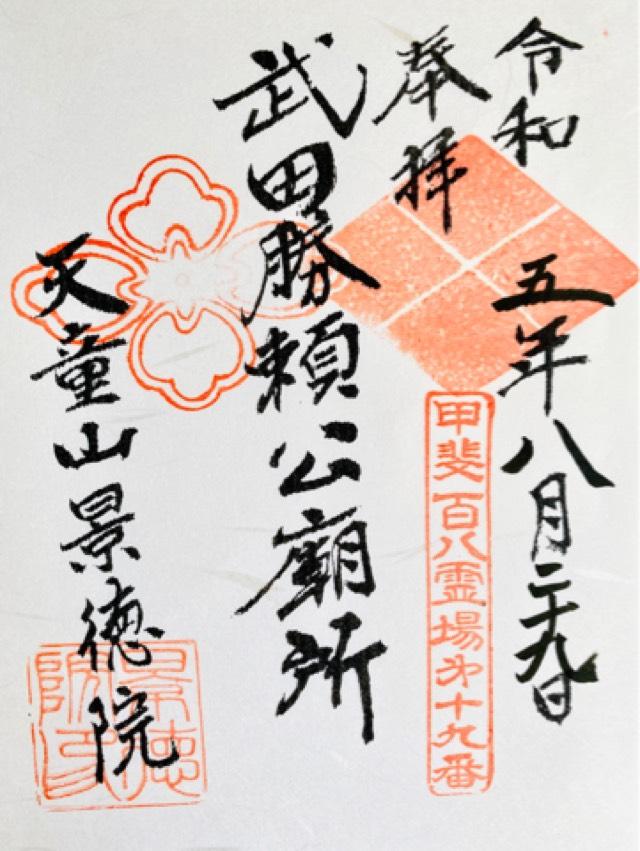 令和五年八月二十九日
奉拝
甲斐百八霊場第十九番
武田勝頼公廟所
天童山景徳院
景徳院印